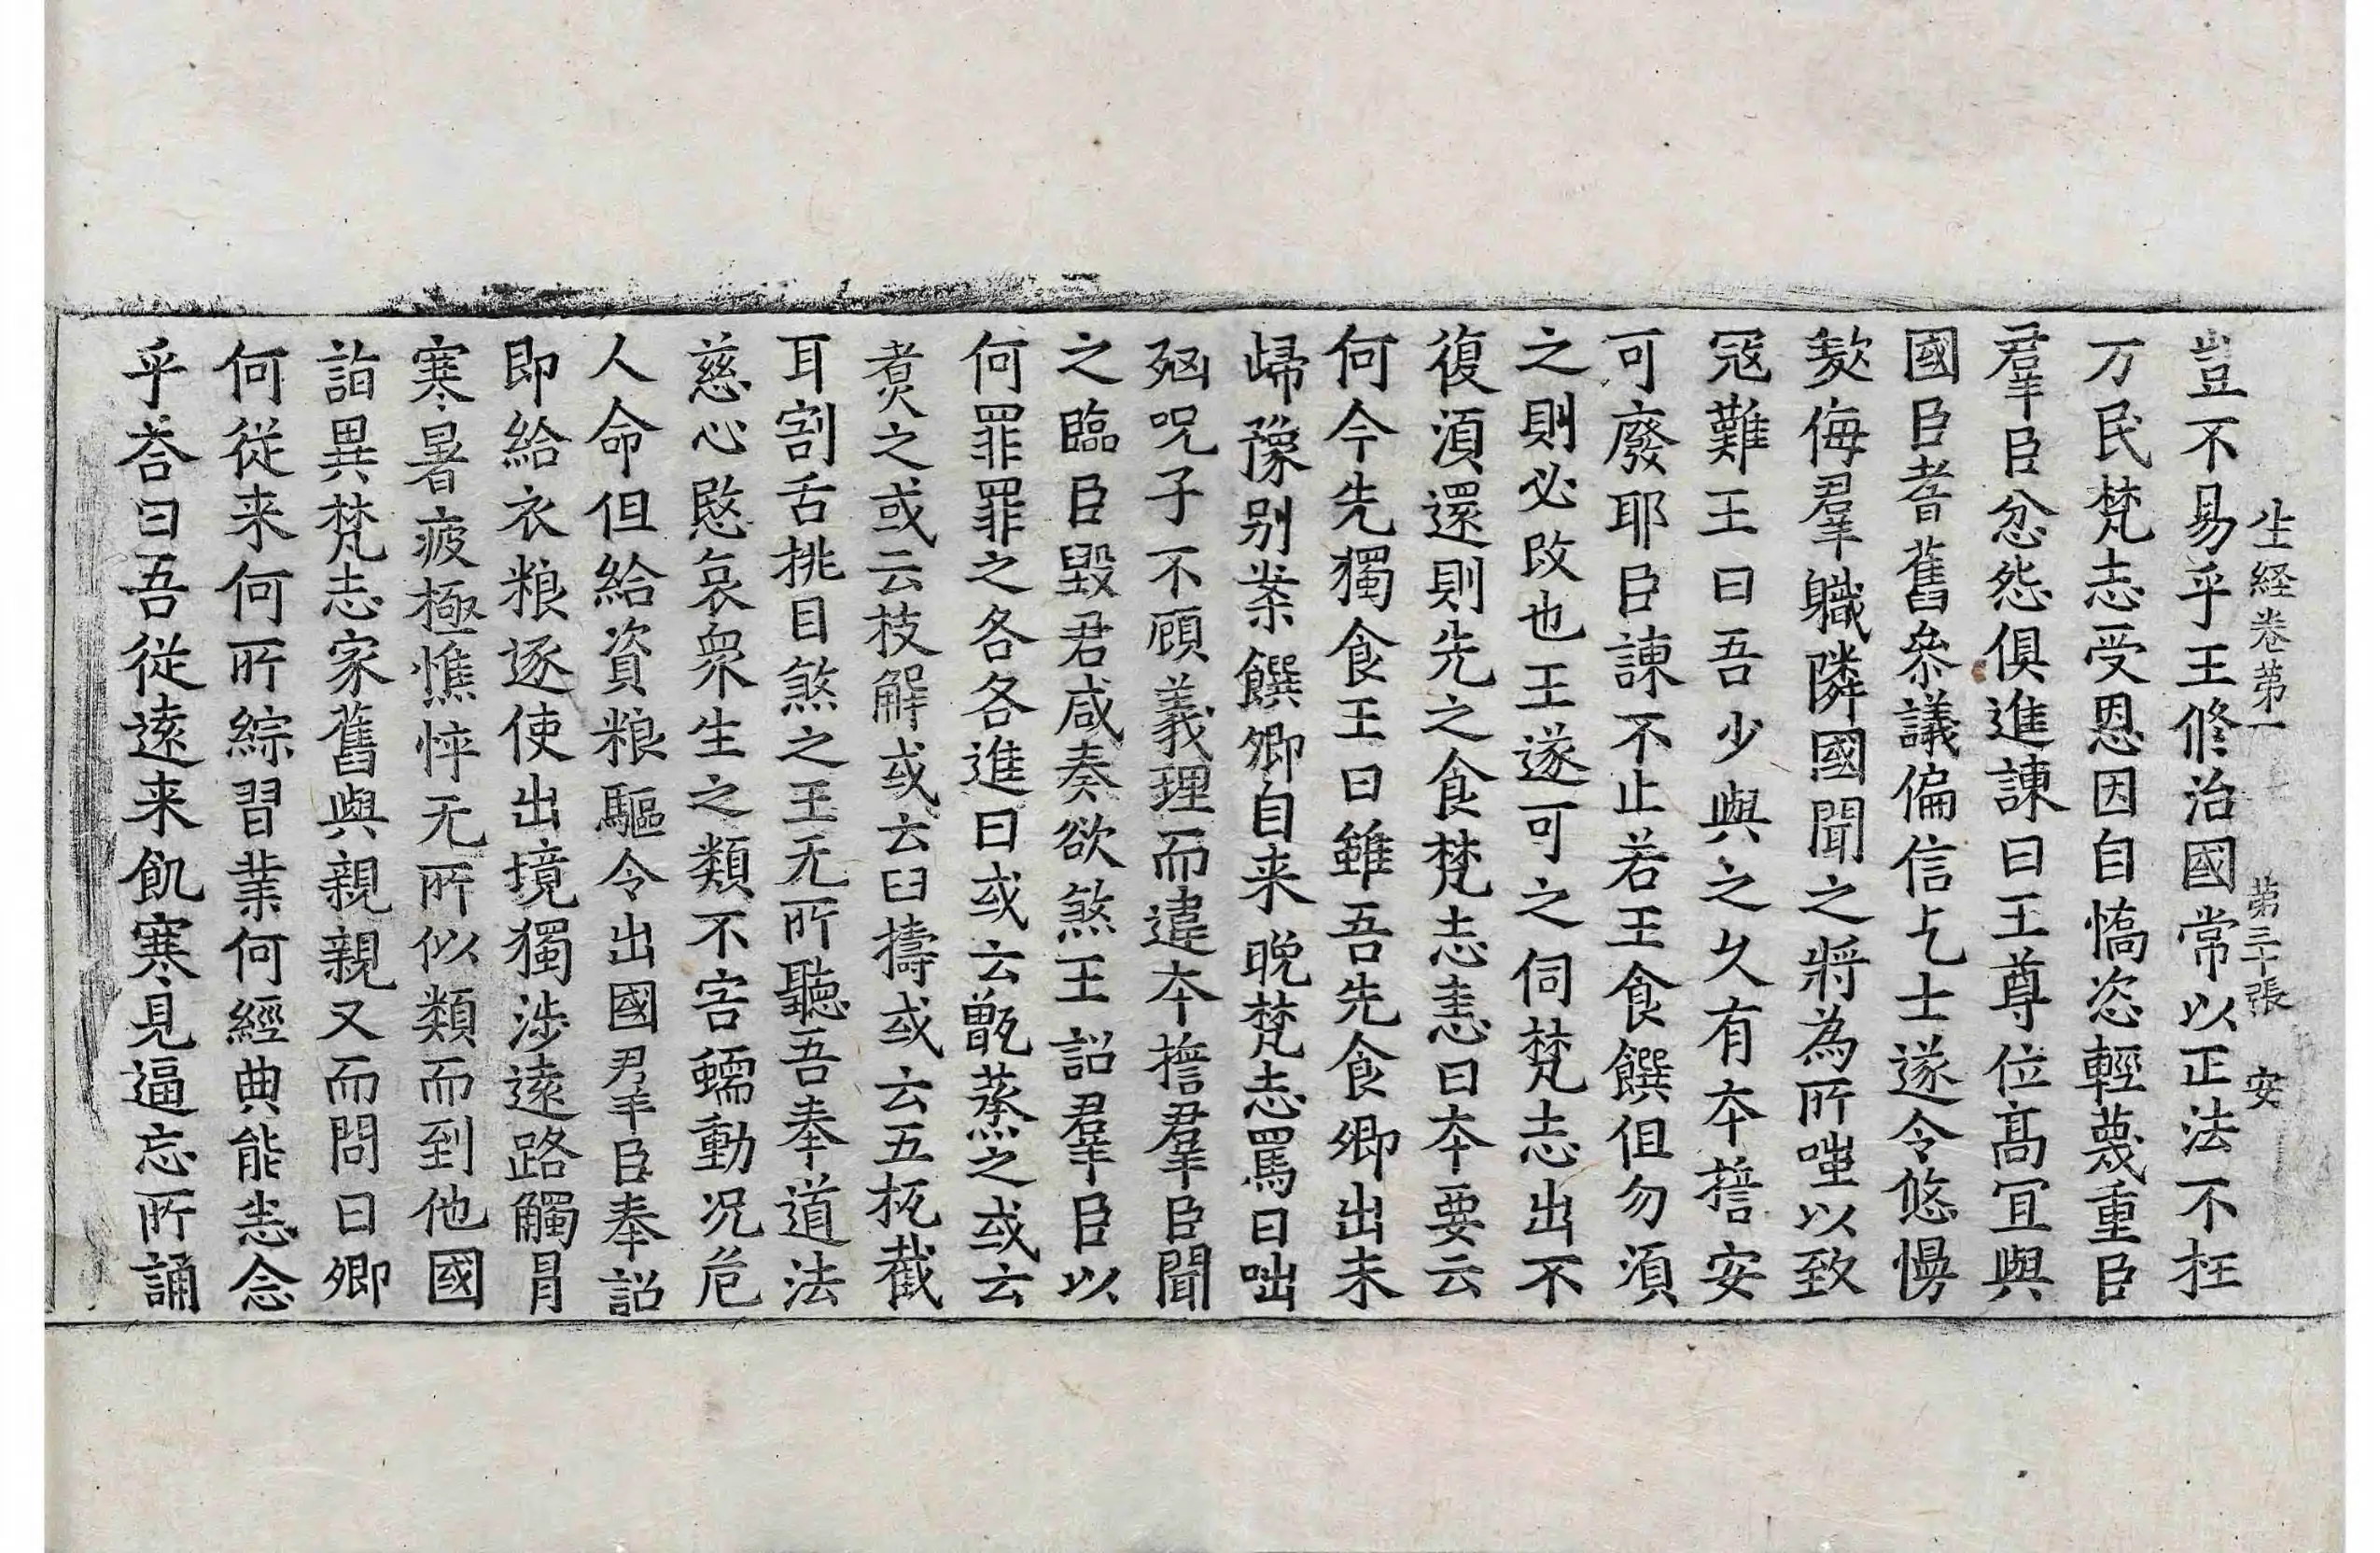 生経卷苐一 苐三十張 安
豈不易乎王修治國常以正法不枉
万民梵志受恩因自憍恣輕蔑重臣
羣臣忿怨俱進諫曰王尊位髙冝與
國臣耆舊叅議偏信乞士遂令悠慢
欺侮羣職隣國聞之將為所嗤以致
冦難王曰吾少與之久有本誓安
可廢耶臣諫不止若王食饌但勿湏
之則必改也王遂可之伺梵志出不
復湏還則先之食梵志恚曰本要云
何今先獨食王曰雖吾先食卿出未
歸豫別案饌卿自来晚梵志罵曰咄
㐫呪子不顧義理而違本誓羣臣聞
之臨臣毀君咸奏欲煞王詔羣臣以
何罪罪之各各進曰或云甑蒸之或云
煑之或云枝解或云臼擣或云五杌截
耳割舌挑目煞之王无所聽吾奉道法
慈心愍哀衆生之類不害蠕動况危
人命但給資粮驅令出國羣臣奉詔
即給衣粮逐使出境獨涉遠路觸冐
寒暑疲極憔悴无所似類而到他國
詣異梵志家舊與親親又而問曰卿
何從来何所綜習業何經典能悉念
乎荅曰吾從遠来飢寒見逼忘所誦